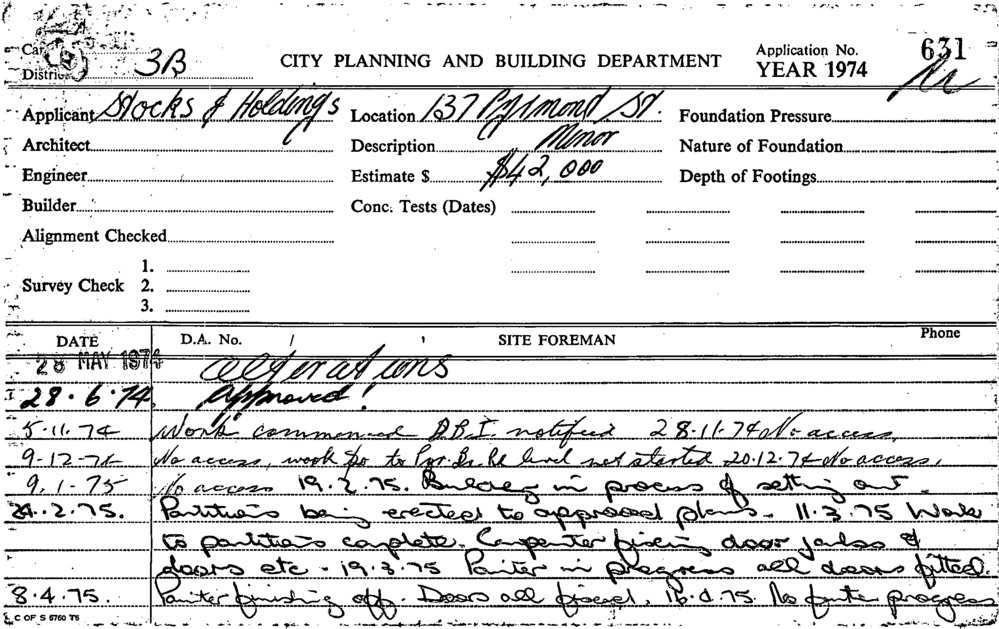 Card
District 3B CITY PLANNING AND BUILDING DEPARTMENT Application No. 631
YEAR 1974
Applicant Stocks & Holdings Location 137 Pyrmond St. Foundation Pressure
Architect Description Minor Nature of Foundation
Engineer Estimate $ $42,000 Depth of Footings
Builder Conc. Tests (Dates)
Alignment Checked
1.
Survey Check 2.
3.
DATE D.A. No. / SITE FOREMAN Phone
28 MAY 1974 alterations
28.6.74 approved!
5.11.74 Work commenced D.B.I. notified 28.11.74 No access.
9-12-74 No access, work to level not started 20.12.74 No access.
9.1.75 No access 19.2.75. Builder in process of setting out.
24.2.75. Partitions being erected to approved plans. 11.3.75 Work
to partitions complete. Carpenter fixing door jambs &
doors etc - 19.3.75 Painter in progress all doors fitted.
8.4.75. Painter finishing off. Doors all fixed. 16.4.75. No further progress
C OF S 5750 T6